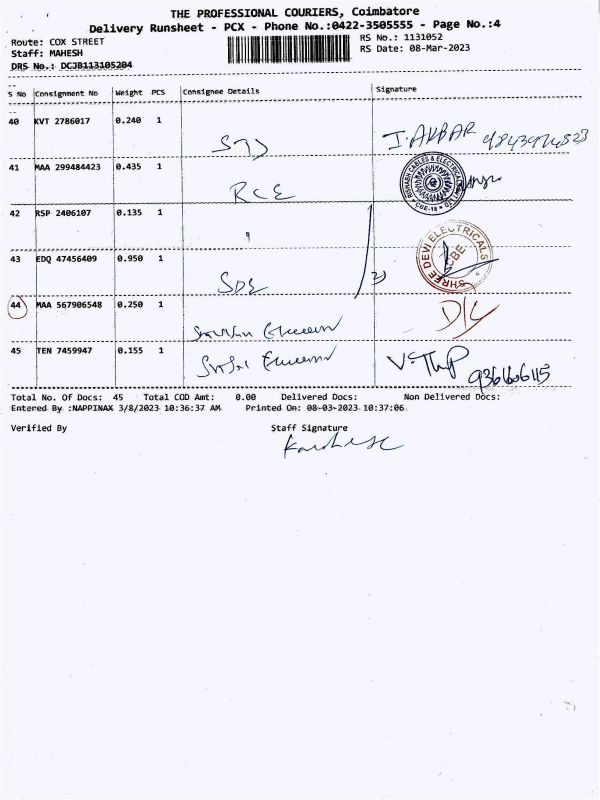 THE PROFESSIONAL COURIERS, Coimbatore
Delivery Runsheet - PCX - Phone No.:0422-3505555 - Page No.:4
Route: COX STREET
RS No.: 1131052
Staff: MAHESH
RS Date: 08-Mar-2023
DRS No.: DCJB113105204
S No Consignment No Weight PCS Consignee Details Signature
40 KVT 2786017 0.240 1
I. AKBAR
41 MAA 299484423 0.435 1 RCE
RISHABH CABLES & ELECTRICALS
CBE-18
42 RSP 2406107 0.135 1 "
43 EDQ 47456409 0.950 1 SDE
SHREE DEVI ELECTRICALS
CBE
44 MAA 567906548 0.250 1
45 TEN 7459947 0.155 1
Total No. Of Docs: 45 Total COD Amt: 0.00 Delivered Docs: Non Delivered Docs:
Entered By :NAPPINAX 3/8/2023 10:36:37 AM Printed On: 08-03-2023 10:37:06
Verified By Staff Signature